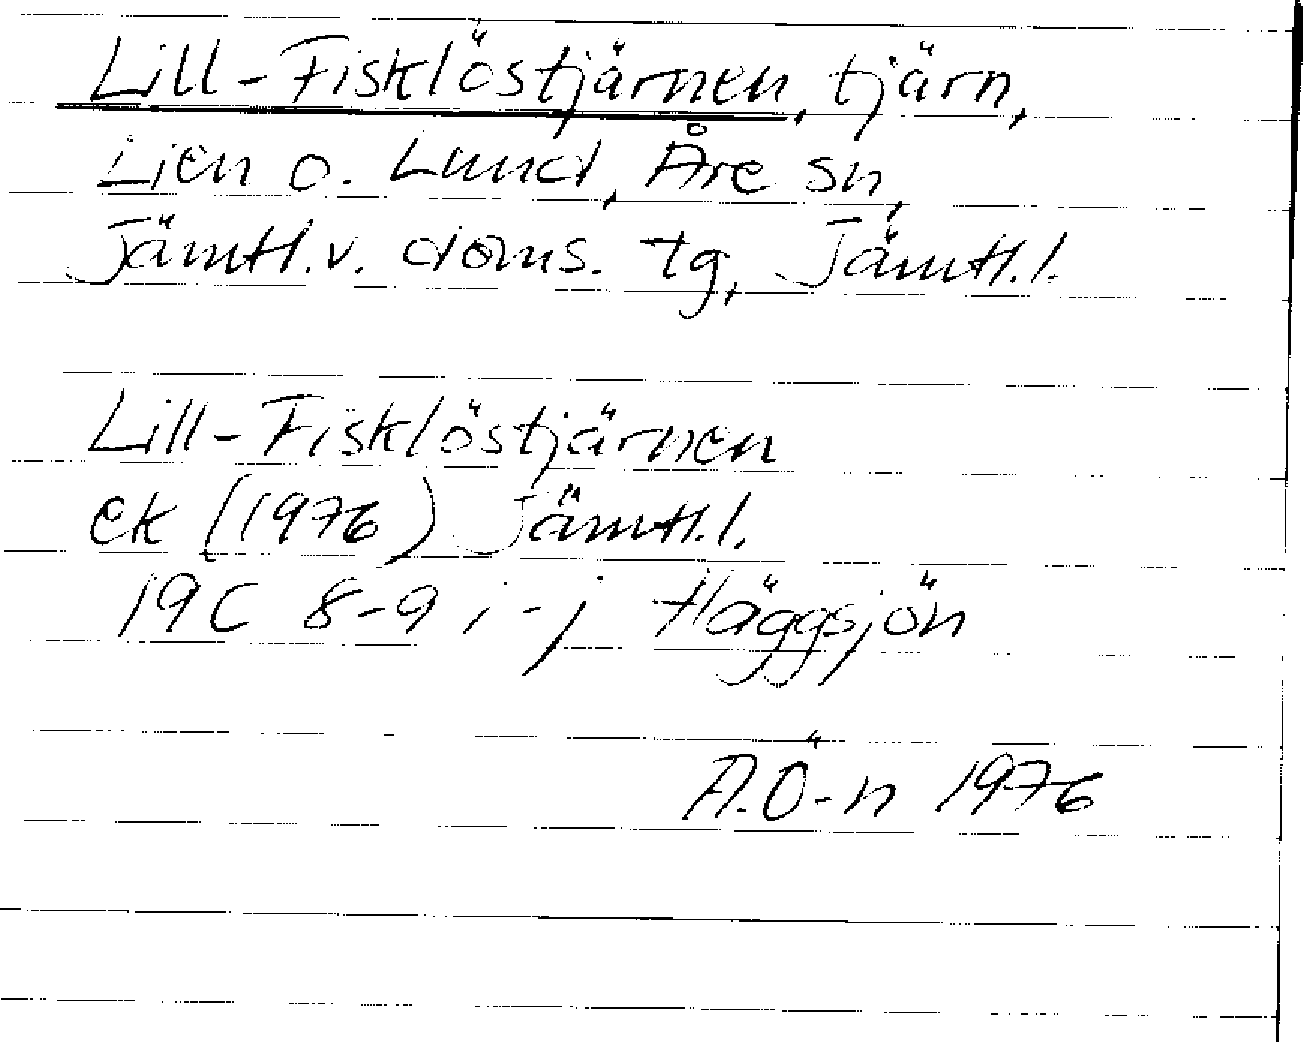 Lill-Fisklöstjärnen, tjärn,
Lien o. Lund, Åre sn,
Jämtl.v. doms. tg, Jämtl.l.
Lill-Fisklöstjärnen
ek (1976) Jämtl.l.
19C 8-9 i-j Häggsjön
A.Ö-n 1976